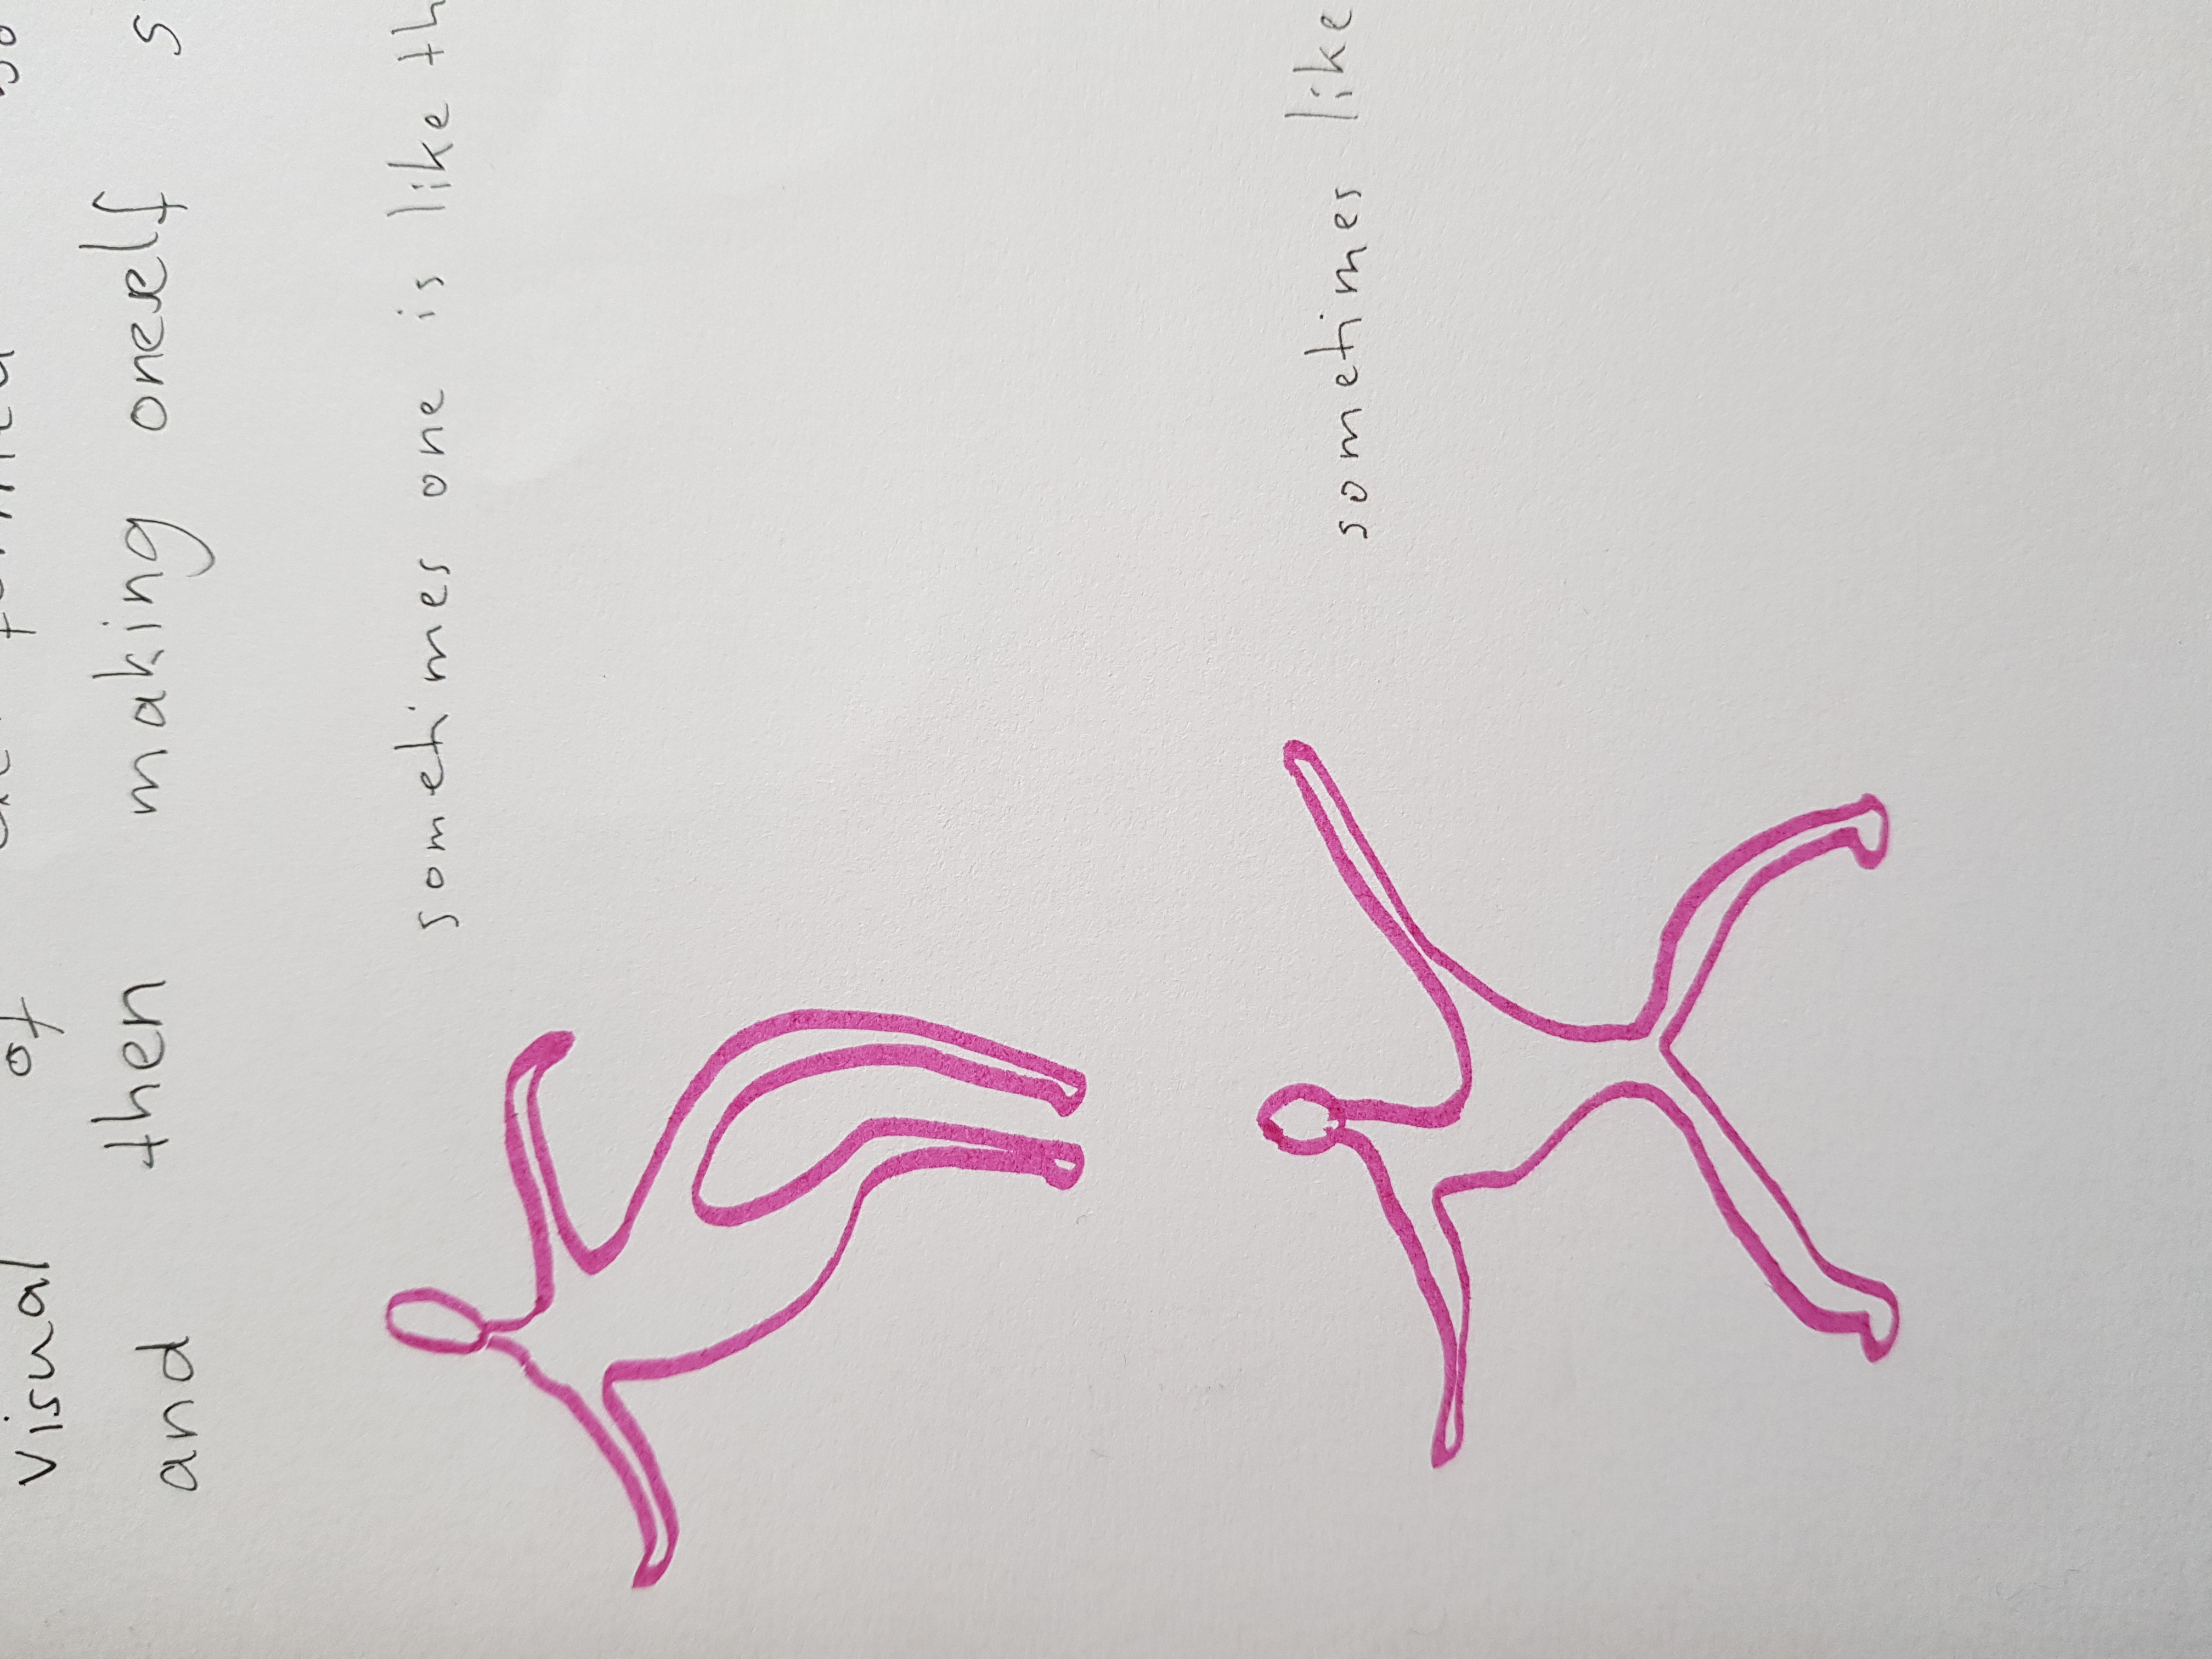 visual of
and then making oneself s
sometimes one is like th
sometimes like